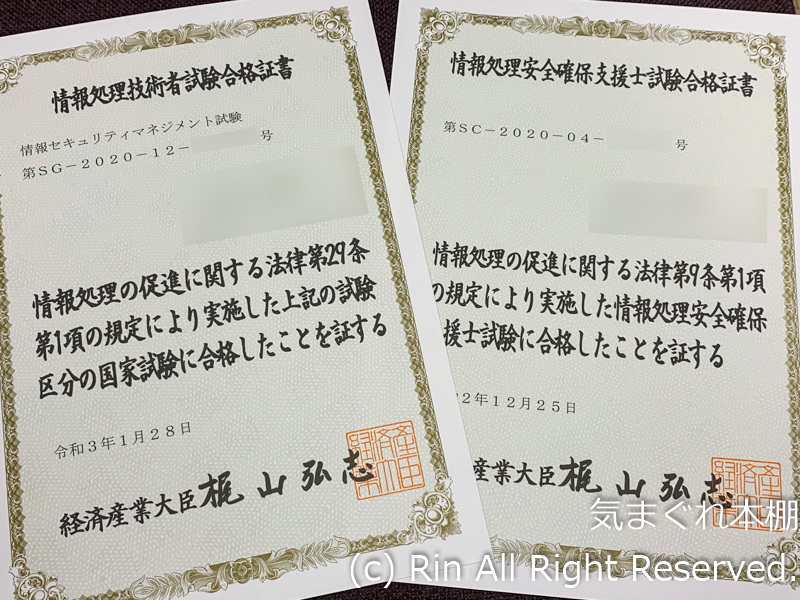 情報処理技術者試験合格証書
情報セキュリティマネジメント試験
第SG－2020－12－ 号
情報処理の促進に関する法律第29条
第1項の規定により実施した上記の試験
区分の国家試験に合格したことを証する
令和3年1月28日
経済産業大臣 梶山弘志
情報処理安全確保支援士試験合格証書
第SC－2020－04－ 号
情報処理の促進に関する法律第9条第1項
の規定により実施した情報処理安全確保
援士試験に合格したことを証する
2年12月25日
産業大臣 梶山弘志
気まぐれ本棚
(c) Rin All Right Reserved.